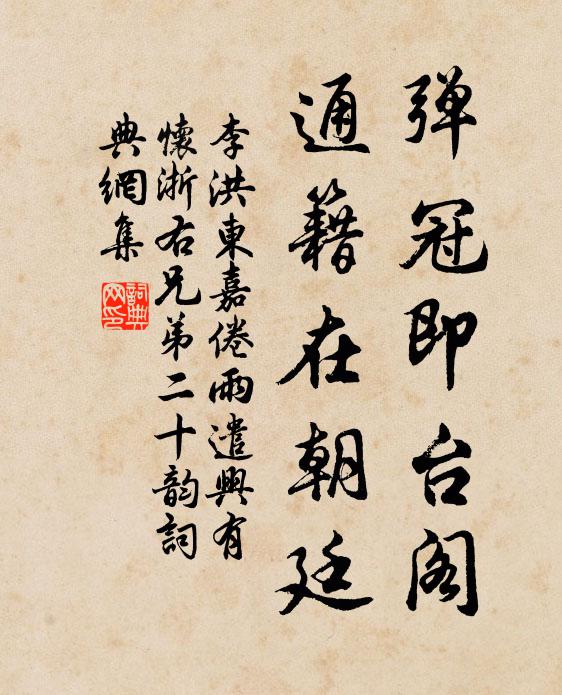 弹冠即台阁
通籍在朝廷
李洪東嘉倦雨遣興有
懷浙右兄弟二十韵詞
典網集
詞典网印